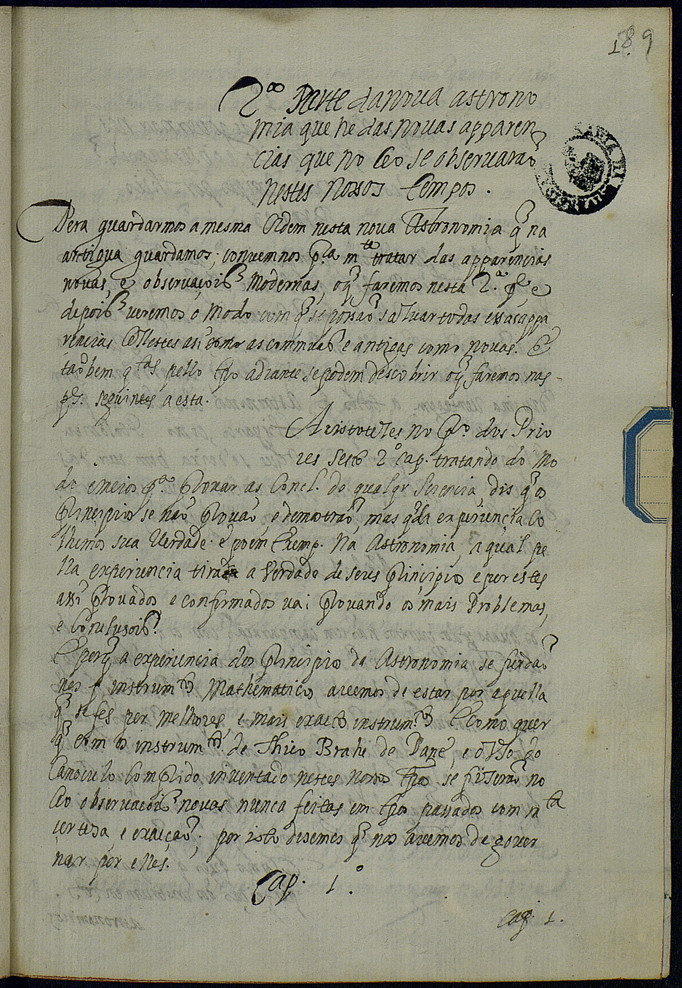 189
2ª Parte da nova astrono
mia que he das novas apparen
cias que no Ceo se observarão
nestes nossos tempos.
Pera guardarmos a mesma Ordem nesta nova Astronomia q̃ na
antigua guardamos; convemnos p.ª m.ta tratar das apparencias
novas, e observaçois modernas, o q̃ faremos nesta 2.ª p.e e
depois veremos o modo com q̃ se possaõ saluar todas essas appa
rencias Celestes assi como as commuas e antigas como novas. E
taõbem q.tas pello tp̃o adiante se podem descobrir o q̃ faremos nas
p.es seguintes a esta.
Aristoteles no p.º dos Prio
res 2º cap. tratando do mo
do e meios p.ª provar as Concl. de qualqr sciencia, dis q̃ os
Principios se não provaõ e demostraõ, mas q̃ da experiencia co
lhemos sua verdade. e poem exemp. na Astronomia, a qual pe
lla experiencia tira a verdade de seus principios e por estes
assi provados e confirmados vai provando os mais Problemas,
e Conclusois.
E porq̃ a experiencia dos principios de Astronomia se funda
nos instrum.tos Mathematicos avemos de estar por aquella
q̃ se fes per melhores, e mais exactos instrum.tos E como quer
q̃ com os instrum.tos de Thico Brahe de Dane, e o do
Canoculo comprido inventado nestes nossos tp̃os se fizeraõ no
Ceo observaçois novas nunca feitas em tp̃os passados com m.ta
certeza e exaiçaõ; por isto disemos q̃ nos avemos de gover
nar por elles.
Cap. 1.º
Cap. 1.